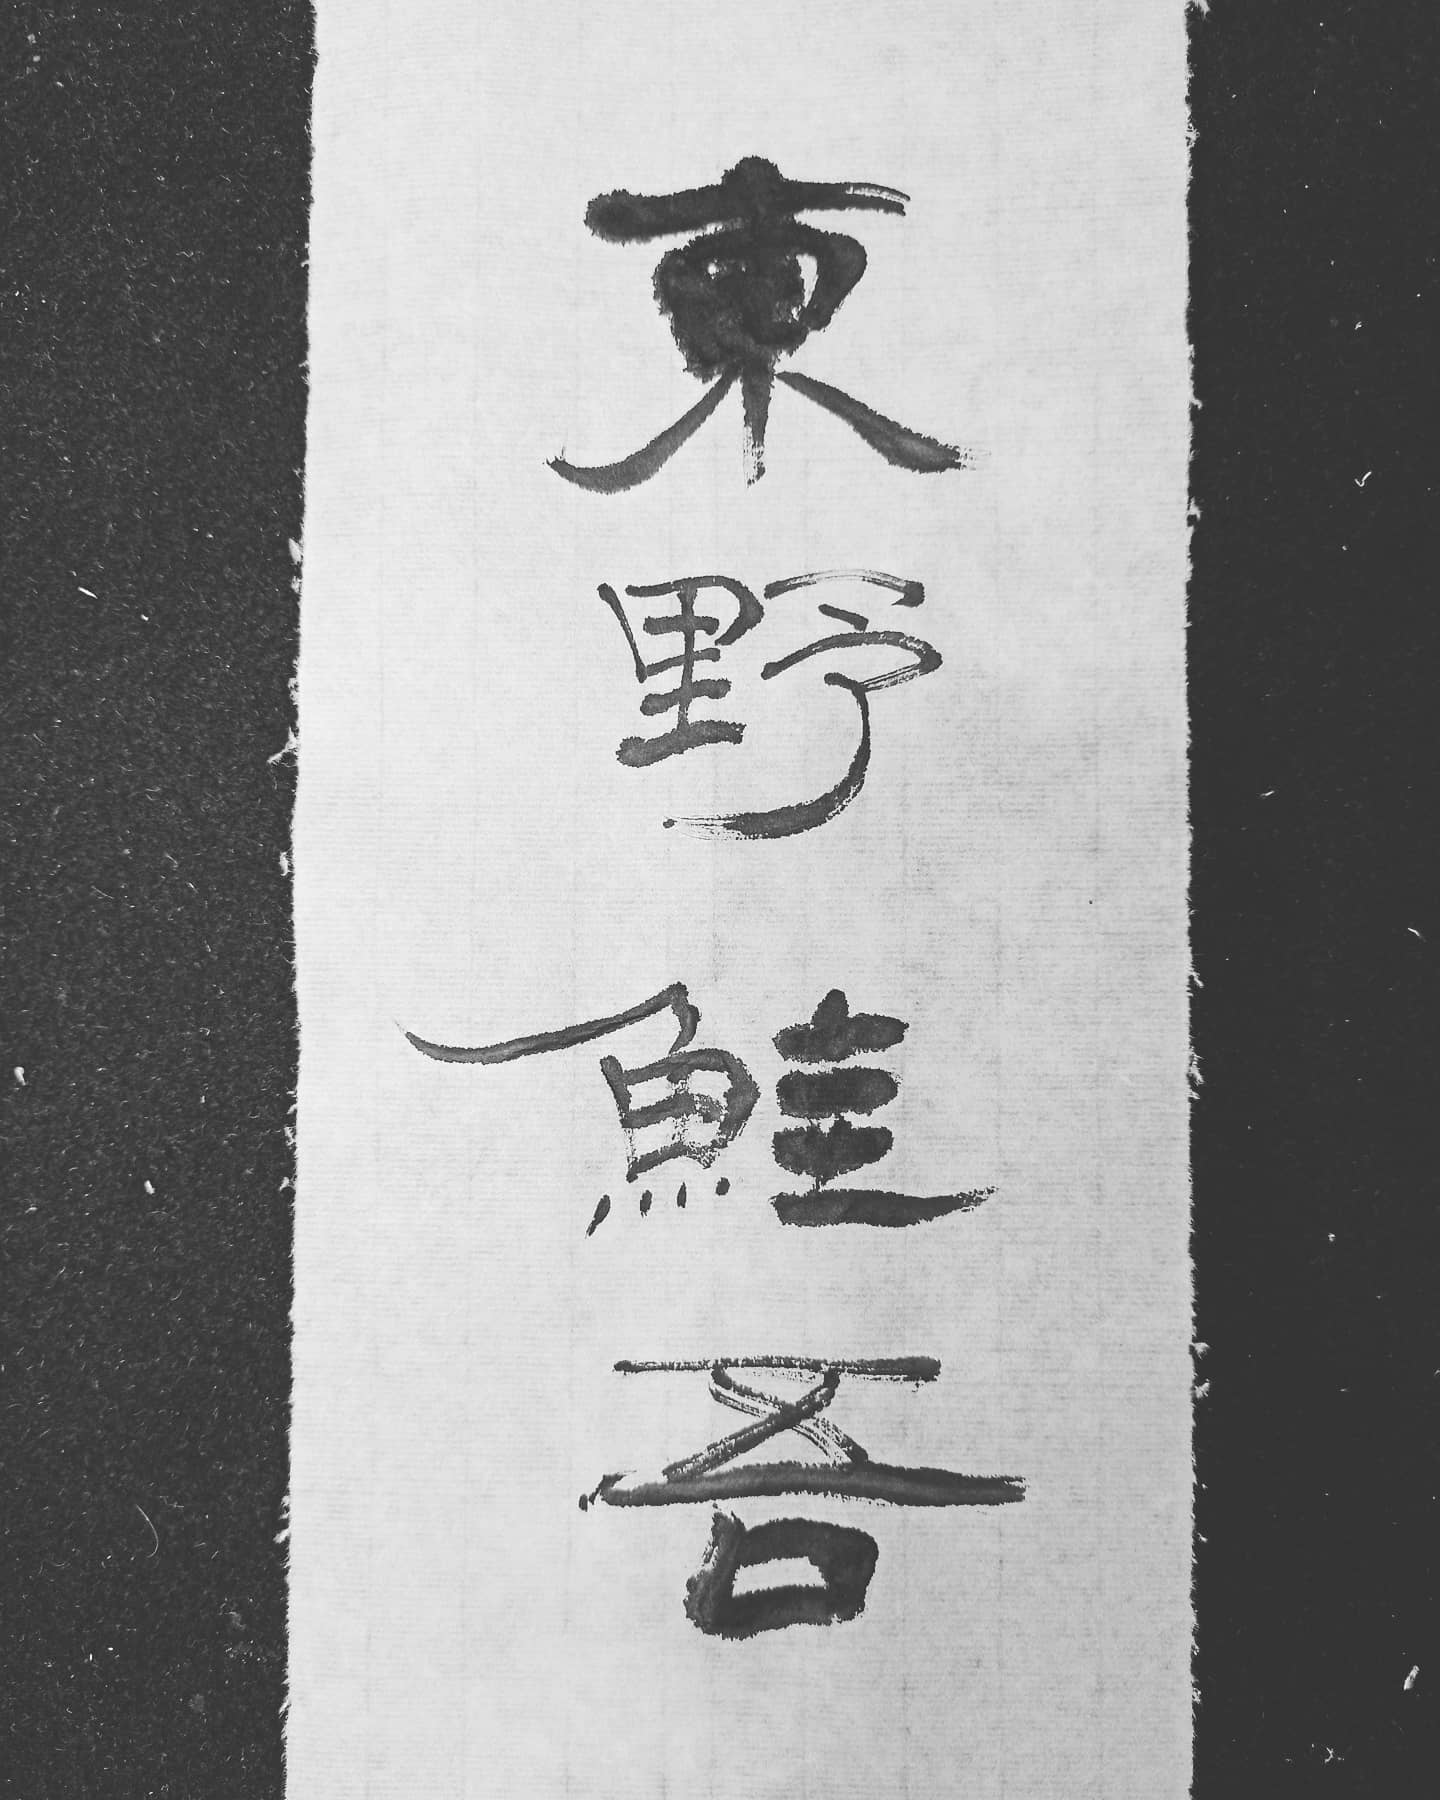 東野鮭吾